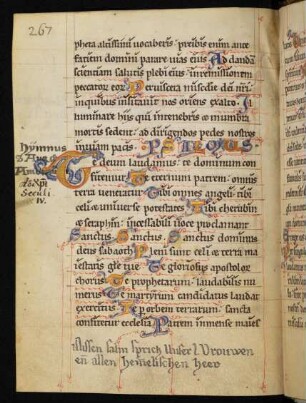 267
pheta altissimi vocaberis : preibis enim ante
faciem domini parare vias eius Ad dandā
scientiam salutis plebi eius : in remissionem
peccatorū eorū Per viscera misericordie dei nrī :
in quibus visitavit nos oriens ex alto Il
luminare hiis qui in tenebris & in umbra
mortis sedent : ad dirigendos pedes nostros
in viam pacis.
Hymnus
Te deum laudamus : te dominum con
fitemur Te eternum patrem : omnis
terra veneratur Tibi omnes angeli : tibi
celi & universe potestates Tibi cherubin
& seraphin : incessabili voce proclamant
Sanctus Sanctus Sanctus dominus
deus sabaoth Pleni sunt celi & terra ma
iestatis glē tue Te gloriosus apostolorū
chorus Te prophetarum : laudabilis nu
merus Te martyrum candidatus laudat
exercitus Te per orbem terrarum : sancta
confitetur ecclesia Patrem inmense maies
salm sprich Unser l. Vrouwen
en allen hemelischen heer